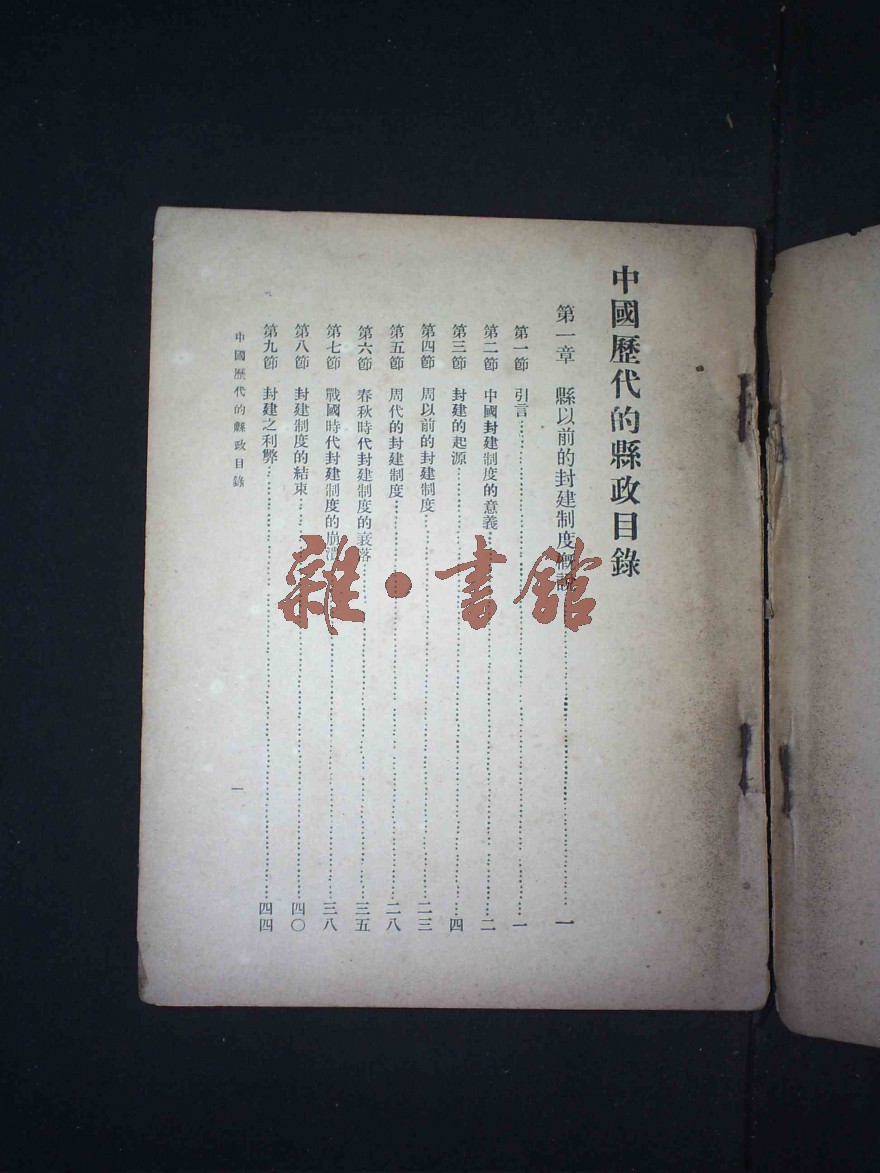 中國歷代的縣政目錄
第一章 縣以前的封建制度概說……一
第一節 引言……一
第二節 中國封建制度的意義……二
第三節 封建的起源……四
第四節 周以前的封建制度……二三
第五節 周代的封建制度……二八
第六節 春秋時代封建制度的衰落……三五
第七節 戰國時代封建制度的崩潰……三八
第八節 封建制度的結束……四〇
第九節 封建之利弊……四四
中國歷代的縣政目錄 一
雜·書館